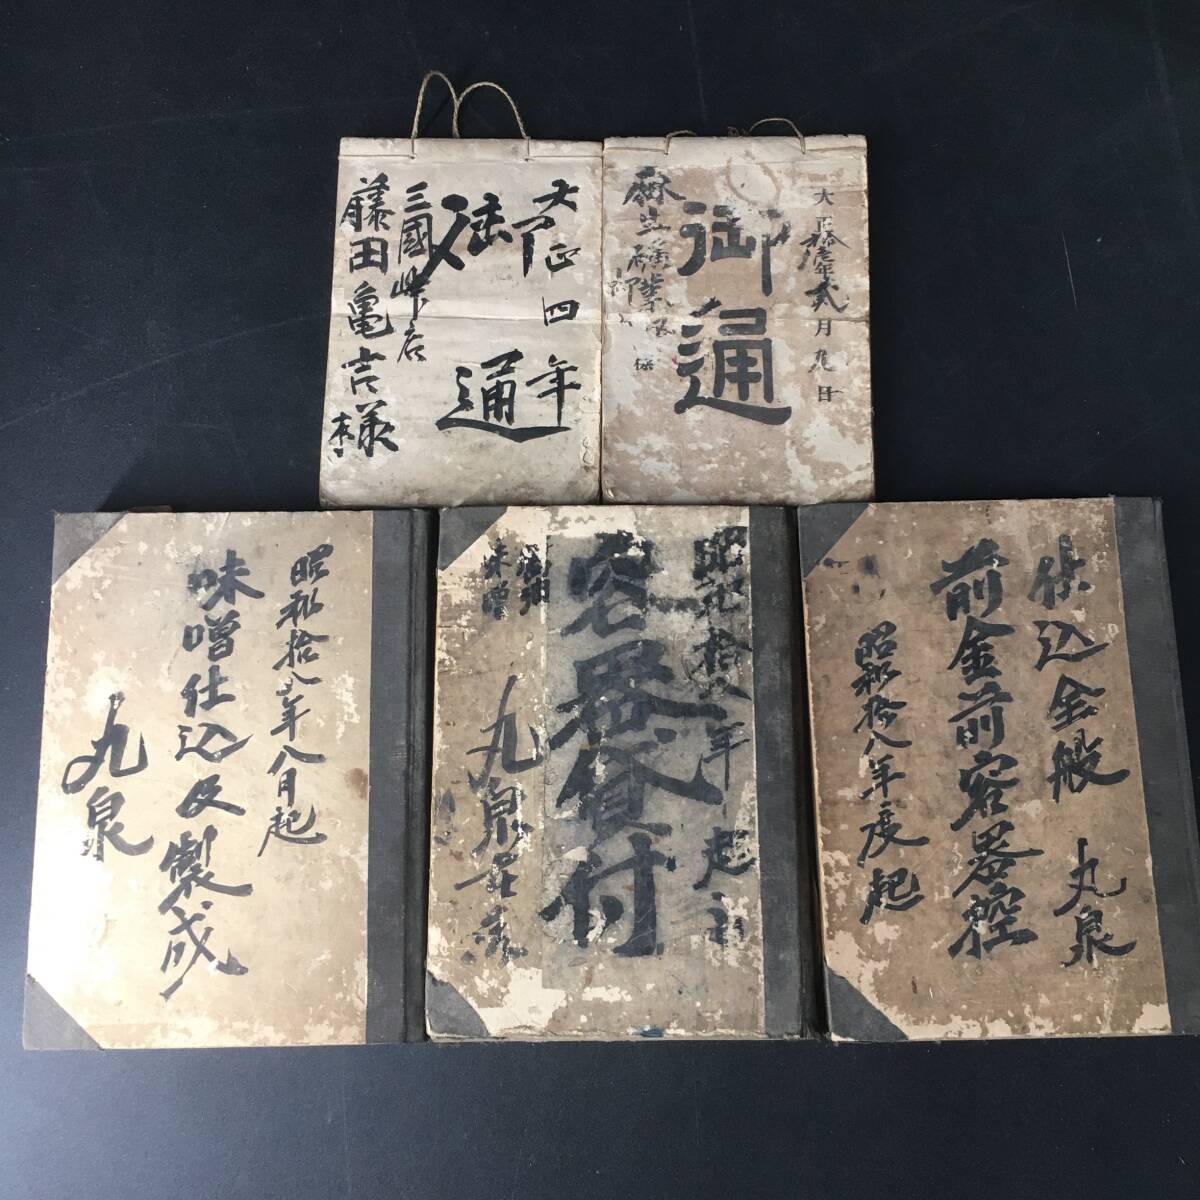 大正四年
御通
三國峠店
藤田亀吉様
大正拾壱年弐月九日
御通
麻生
様
昭和拾八年八月起
味噌仕込及製成
丸泉
昭和拾八年起
容器貸付
味噌
丸泉
仕込全般 丸泉
前金前容器控
昭和拾八年度起